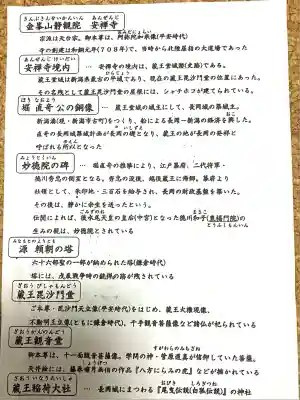 金峯山静観院 安禅寺
宗派は天台宗、御本尊は、阿弥陀如来像(平安時代)
寺の創建は和銅元年(708年)で、当時から北陸屈指の大道場であった
安禅寺境内 … 安禅寺の境内は、蔵王堂城郭(史跡)である。
蔵王堂城は新潟県最古の平城であり、現在の蔵王毘沙門堂の位置にあった。
その名残として蔵王毘沙門堂の屋根には、シャチホコが建てられている。
堀 直竒 公の銅像 … 蔵王堂城の城主にして、長岡城の築城主。
新潟湊(現・新潟市古町)をつくり、船による長岡~新潟の経済を興した。
直竒の長岡城築城計画が長岡の礎となり、蔵王の地が長岡の発祥と
呼ばれる所以となった
妙徳院の碑 … 堀直竒の推挙により、江戸幕府、二代将軍・
徳川秀忠の側室となる。秀忠の没後、越後蔵王に帰郷。幕府より
社領として、朱印地・三百石を給与され、長岡の財政基盤を築いた。
その後は、静かに余生を送ったという。
伝聞によれば、後水尾天皇の皇后(中宮)となった徳川和子(東福門院)の
生みの親は、妙徳院とされている
源 頼朝の塔
六十六部聖の一部が納められた塔(鎌倉時代)
塔には、戊辰戦争時の銃弾の跡が残されている
蔵王毘沙門堂
ご本尊・毘沙門天立像(平安時代)をはじめ、蔵王大権現像、
不動明王立像(ともに鎌倉時代)、千手観音菩薩像など諸仏が祀られている
蔵王観音堂
御本尊は、十一面観音菩薩像。学問の神・菅原道真が信仰していた菩薩。
蔵王稲荷大社 … 長岡城にまつわる『尾曳伝説(白狐伝説)』の神社